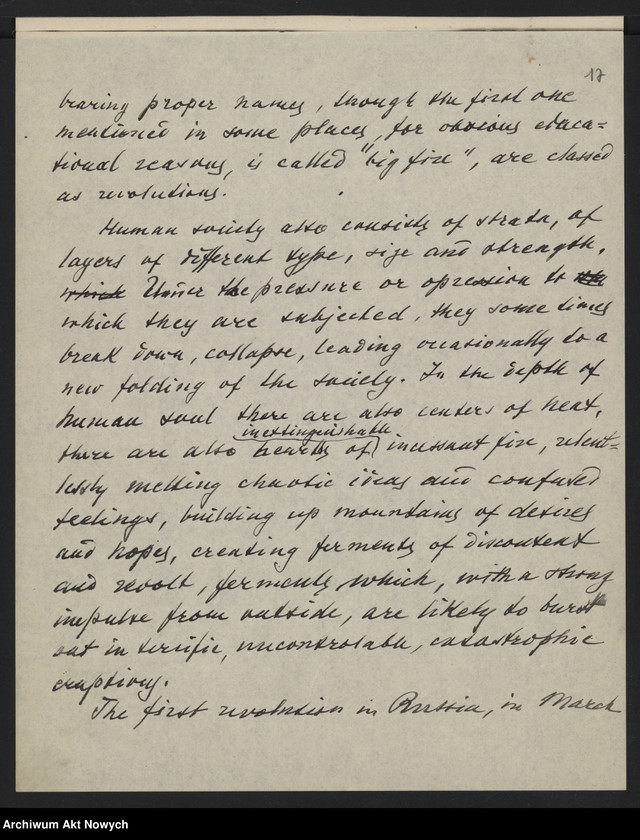 17
bearing proper names, though the first one
mentioned in some places, for obvious educa=
tional reasons, is called "big fire", are classed
as revolutions.
Human society also consists of strata, of
layers of different type, size and strength.
which Under the pressure or opression to
which they are subjected, they some times
break down, collapse, leading occasionally to a
new folding of the society. In the depth of
human soul there are also centers of heat,
inextinguishable
there are also hearths of incessant fire, relent=
lessly melting chaotic ideas and confused
feelings, building up mountains of desires
and hopes, creating ferments of discontent
and revolt, ferments which, with a strong
impulse from outside, are likely to burst
out in terrific, uncontrolable, catastrophic
eruptions.
The first revolution in Russia, in March
Archiwum Akt Nowych